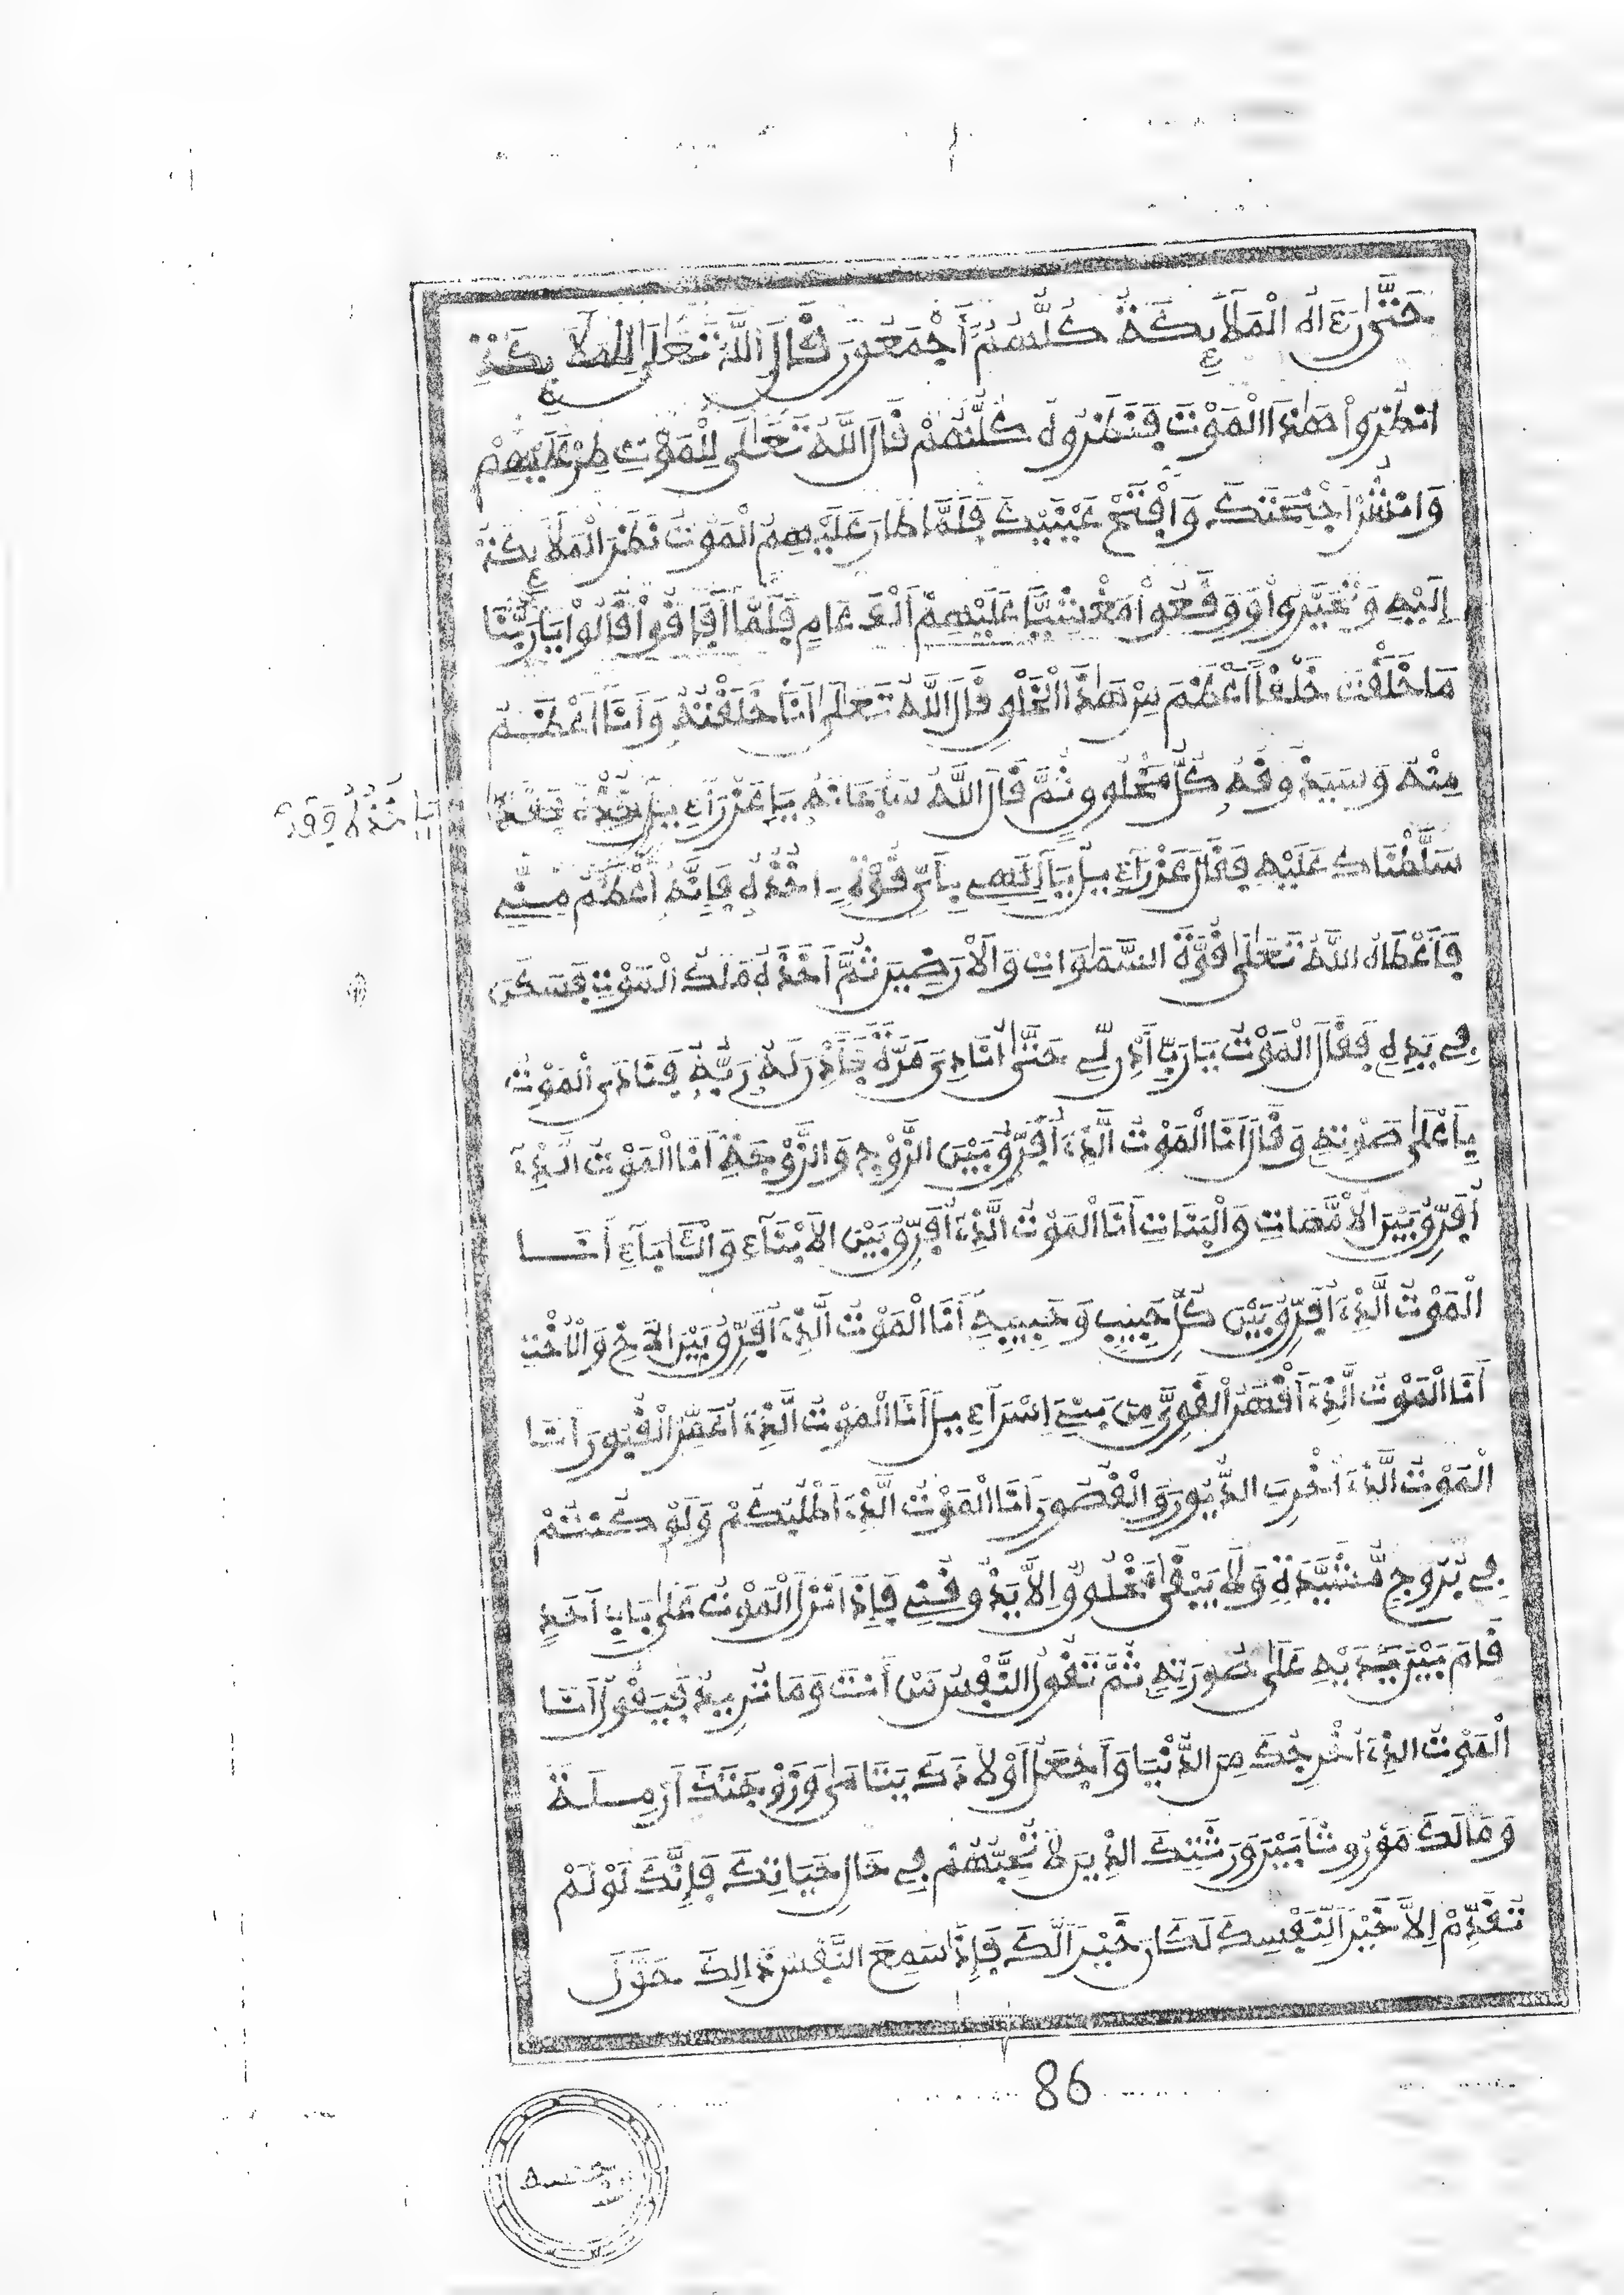 حَتَّىٰ رَءَاهُ الْمَلَآئِكَةُ كُلُّهُمُ أَجْمَعُونَ قَالَ اللَّهُ تَعَالَىٰ لِلْمَلَآئِكَةِ
انظُرُواْ هَٰذَا الْمَوْتَ فَنَظَرُوهُ كُلُّهُمْ قَالَ اللَّهُ تَعَالَىٰ لِلْمَوْتِ طِرْ عَلَيْهِمْ
وَانْشُرْ أَجْنِحَتَكَ وَافْتَحْ عَيْنَيْكَ فَلَمَّا طَارَ عَلَيْهِمُ الْمَوْتُ نَظَرَ الْمَلَآئِكَةُ
إِلَيْهِ وَتَحَيَّرُواْ وَوَقَعُواْ مَغْشِيًّا عَلَيْهِمْ أَلْفَ عَامٍ فَلَمَّا أَفَاقُواْ قَالُواْ يَا رَبَّنَا
مَا خَلَقْتَ خَلْقًا أَعْظَمَ مِنْ هَٰذَا الْخَلْقِ قَالَ اللَّهُ تَعَالَىٰ أَنَا خَلَقْتُهُ وَأَنَا أَعْظَمُ
مِنْهُ وَسَيَذُوقُهُ كُلُّ مَخْلُوقٍ ثُمَّ قَالَ اللَّهُ سُبْحَانَهُ يَا عَزْرَآءِيلُ خُذْهُ فَقَدْ
سَلَّطْنَاكَ عَلَيْهِ فَقَالَ عَزْرَآءِيلُ يَا إِلَٰهِي بِأَيِّ قُوَّةٍ اخُذُهُ فَإِنَّهُ أَعْظَمُ مِنِّي
فَأَعْطَاهُ اللَّهُ تَعَالَىٰ قُوَّةَ السَّمَٰوَاتِ وَالْأَرَضِينَ ثُمَّ أَخَذَهُ مَلَكُ الْمَوْتِ فَسَكَنَ
فِي يَدِهِ فَقَالَ الْمَوْتُ يَا رَبِّ أَذِنْ لِي حَتَّىٰ أُنَادِيَ مَرَّةً فَأَذِنَ لَهُ رَبُّهُ فَنَادَى الْمَوْتُ
بِأَعْلَىٰ صَوْتِهِ وَقَالَ أَنَا الْمَوْتُ الَّذِي أُفَرِّقُ بَيْنَ الزَّوْجِ وَالزَّوْجَةِ أَنَا الْمَوْتُ الَّذِي
أُفَرِّقُ بَيْنَ الْأُمَّهَاتِ وَالْبَنَاتِ أَنَا الْمَوْتُ الَّذِي أُفَرِّقُ بَيْنَ الْأَبْنَآءِ وَالْآبَآءِ أَنَا
الْمَوْتُ الَّذِي أُفَرِّقُ بَيْنَ كُلِّ حَبِيبٍ وَحَبِيبِهِ أَنَا الْمَوْتُ الَّذِي أُفَرِّقُ بَيْنَ الْأَخِ وَالْأُخْتِ
أَنَا الْمَوْتُ الَّذِي أَقْهَرُ الْقَوِيَّ مِنْ بَنِي إِسْرَآءِيلَ أَنَا الْمَوْتُ الَّذِي أُعَمِّرُ الْقُبُورَ أَنَا
الْمَوْتُ الَّذِي أُخْرِبُ الدُّيُورَ وَالْقُصُورَ أَنَا الْمَوْتُ الَّذِي أَطْلُبُكُمْ وَلَوْ كُنْتُمْ
فِي بُرُوجٍ مُّشَيَّدَةٍ وَلَا يَبْقَىٰ مَخْلُوقٌ إِلَّا يَذُوقُنِي فَإِذَا نَزَلَ الْمَوْتُ عَلَىٰ بَابِ أَحَدٍ
قَامَ بَيْنَ يَدَيْهِ عَلَىٰ صُورَتِهِ ثُمَّ تَقُولُ النَّفْسُ مَنْ أَنْتَ وَمَا تُرِيدُ فَيَقُولُ أَنَا
الْمَوْتُ الَّذِي أُخْرِجُكَ مِنَ الدُّنْيَا وَأَجْعَلُ أَوْلَادَكَ يَتَامَىٰ وَزَوْجَتَكَ أَرْمِلَةً
وَمَالَكَ مَوْرُوثًا بَيْنَ وَرَثَتِكَ الَّذِينَ لَا تُحِبُّهُمْ فِي حَالِ حَيَاتِكَ فَإِنَّكَ لَوْ لَمْ
تُقَدِّمْ إِلَّا خَيْرًا لِّنَفْسِكَ لَكَانَ خَيْرًا لَّكَ فَإِذَا سَمِعَ النَّفْسُ ذَٰلِكَ حَوَّلَ
86